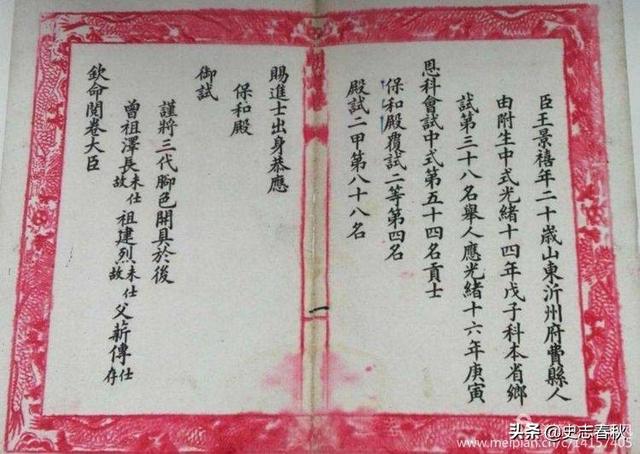 臣王景禧年二十歲山東沂州府費縣人
由附生中式光緒十四年戊子科本省鄉
試第三十八名舉人應光緒十六年庚寅
恩科會試中式第五十四名貢士
保和殿覆試二等第四名
殿試二甲第八十八名
賜進士出身恭應
保和殿
御試
謹將三代腳色開具於後
曾祖澤長未仕故 祖建烈未仕故 父薪傳仕存
欽命閱卷大臣
一
头条 @史志春秋
www.meipian.cn/c/14157405